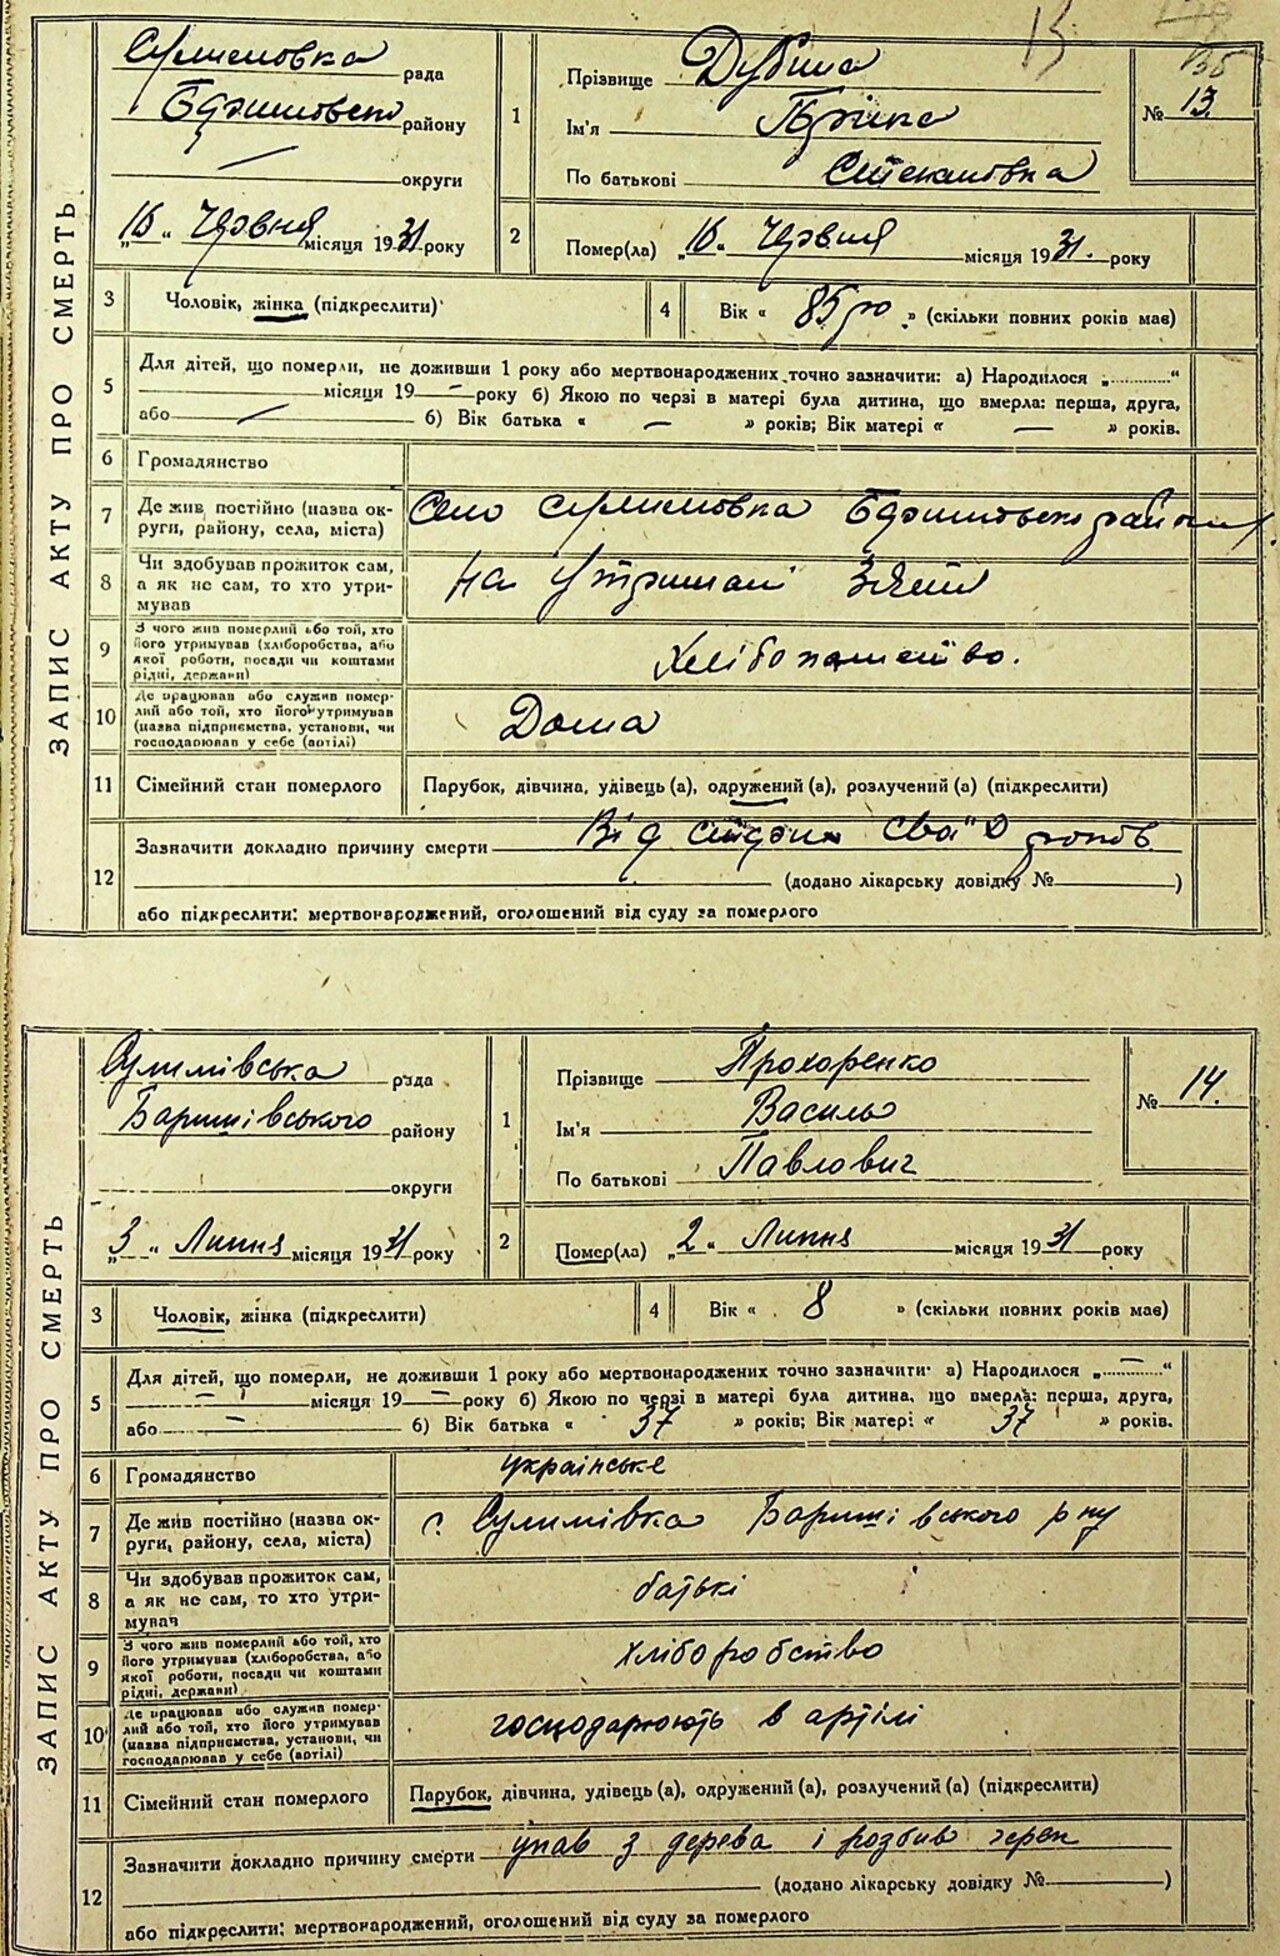 13
ЗАПИС АКТУ ПРО СМЕРТЬ
Сулимовка рада
Баришовсько району
округи
„16“ Червня місяця 1931 року
1
Прізвище Дубина
Ім'я
По батькові Степановна
№ 13.
2
Помер(ла) „16“ Червня місяця 1931. року
3 Чоловік, жінка (підкреслити)
4 Вік « 85 ро » (скільки повних років має)
5 Для дітей, що померли, не доживши 1 року або мертвонароджених точно зазначити: а) Народилося „..........“
місяця 19 — року б) Якою по черзі в матері була дитина, що вмерла: перша, друга,
або — б) Вік батька « — » років; Вік матері « — » років.
6 Громадянство
7 Де жив постійно (назва округи, району, села, міста) Село Сулимовка Баришовсько району
8 Чи здобував прожиток сам, а як не сам, то хто утримував На утримані Зятя
9 З чого жив померлий або той, хто його утримував (хліборобства, або якої роботи, посади чи коштами рідні, держави) Хлібопашество.
10 Де працював або служив померлий або той, хто його утримував (назва підприємства, установи, чи господарював у себе (артілі) Дома
11 Сімейний стан померлого Парубок, дівчина, удівець (а), одружений (а), розлучений (а) (підкреслити)
12 Зазначити докладно причину смерти Від старих своїх років
(додано лікарську довідку № )
або підкреслити: мертвонароджений, оголошений від суду за померлого
ЗАПИС АКТУ ПРО СМЕРТЬ
Сулимівська рада
Баришівського району
округи
„3“ Липня місяця 1931 року
1
Прізвище Прохоренко
Ім'я Василь
По батькові Павлович
№ 14.
2
Помер(ла) „2“ Липня місяця 1931 року
3 Чоловік, жінка (підкреслити)
4 Вік « 8 » (скільки повних років має)
5 Для дітей, що померли, не доживши 1 року або мертвонароджених точно зазначити: а) Народилося „—“
— місяця 19 — року б) Якою по черзі в матері була дитина, що вмерла: перша, друга,
або — б) Вік батька « 37 » років; Вік матері « 37 » років.
6 Громадянство українське
7 Де жив постійно (назва округи, району, села, міста) с. Сулимівка Баришівського р-ну
8 Чи здобував прожиток сам, а як не сам, то хто утримував батькі
9 З чого жив померлий або той, хто його утримував (хліборобства, або якої роботи, посади чи коштами рідні, держави) хліборобство
10 Де працював або служив померлий або той, хто його утримував (назва підприємства, установи, чи господарював у себе (артілі) господарюють в артілі
11 Сімейний стан померлого Парубок, дівчина, удівець (а), одружений (а), розлучений (а) (підкреслити)
12 Зазначити докладно причину смерти упав з дерева і розбив череп
(додано лікарську довідку № )
або підкреслити: мертвонароджений, оголошений від суду за померлого